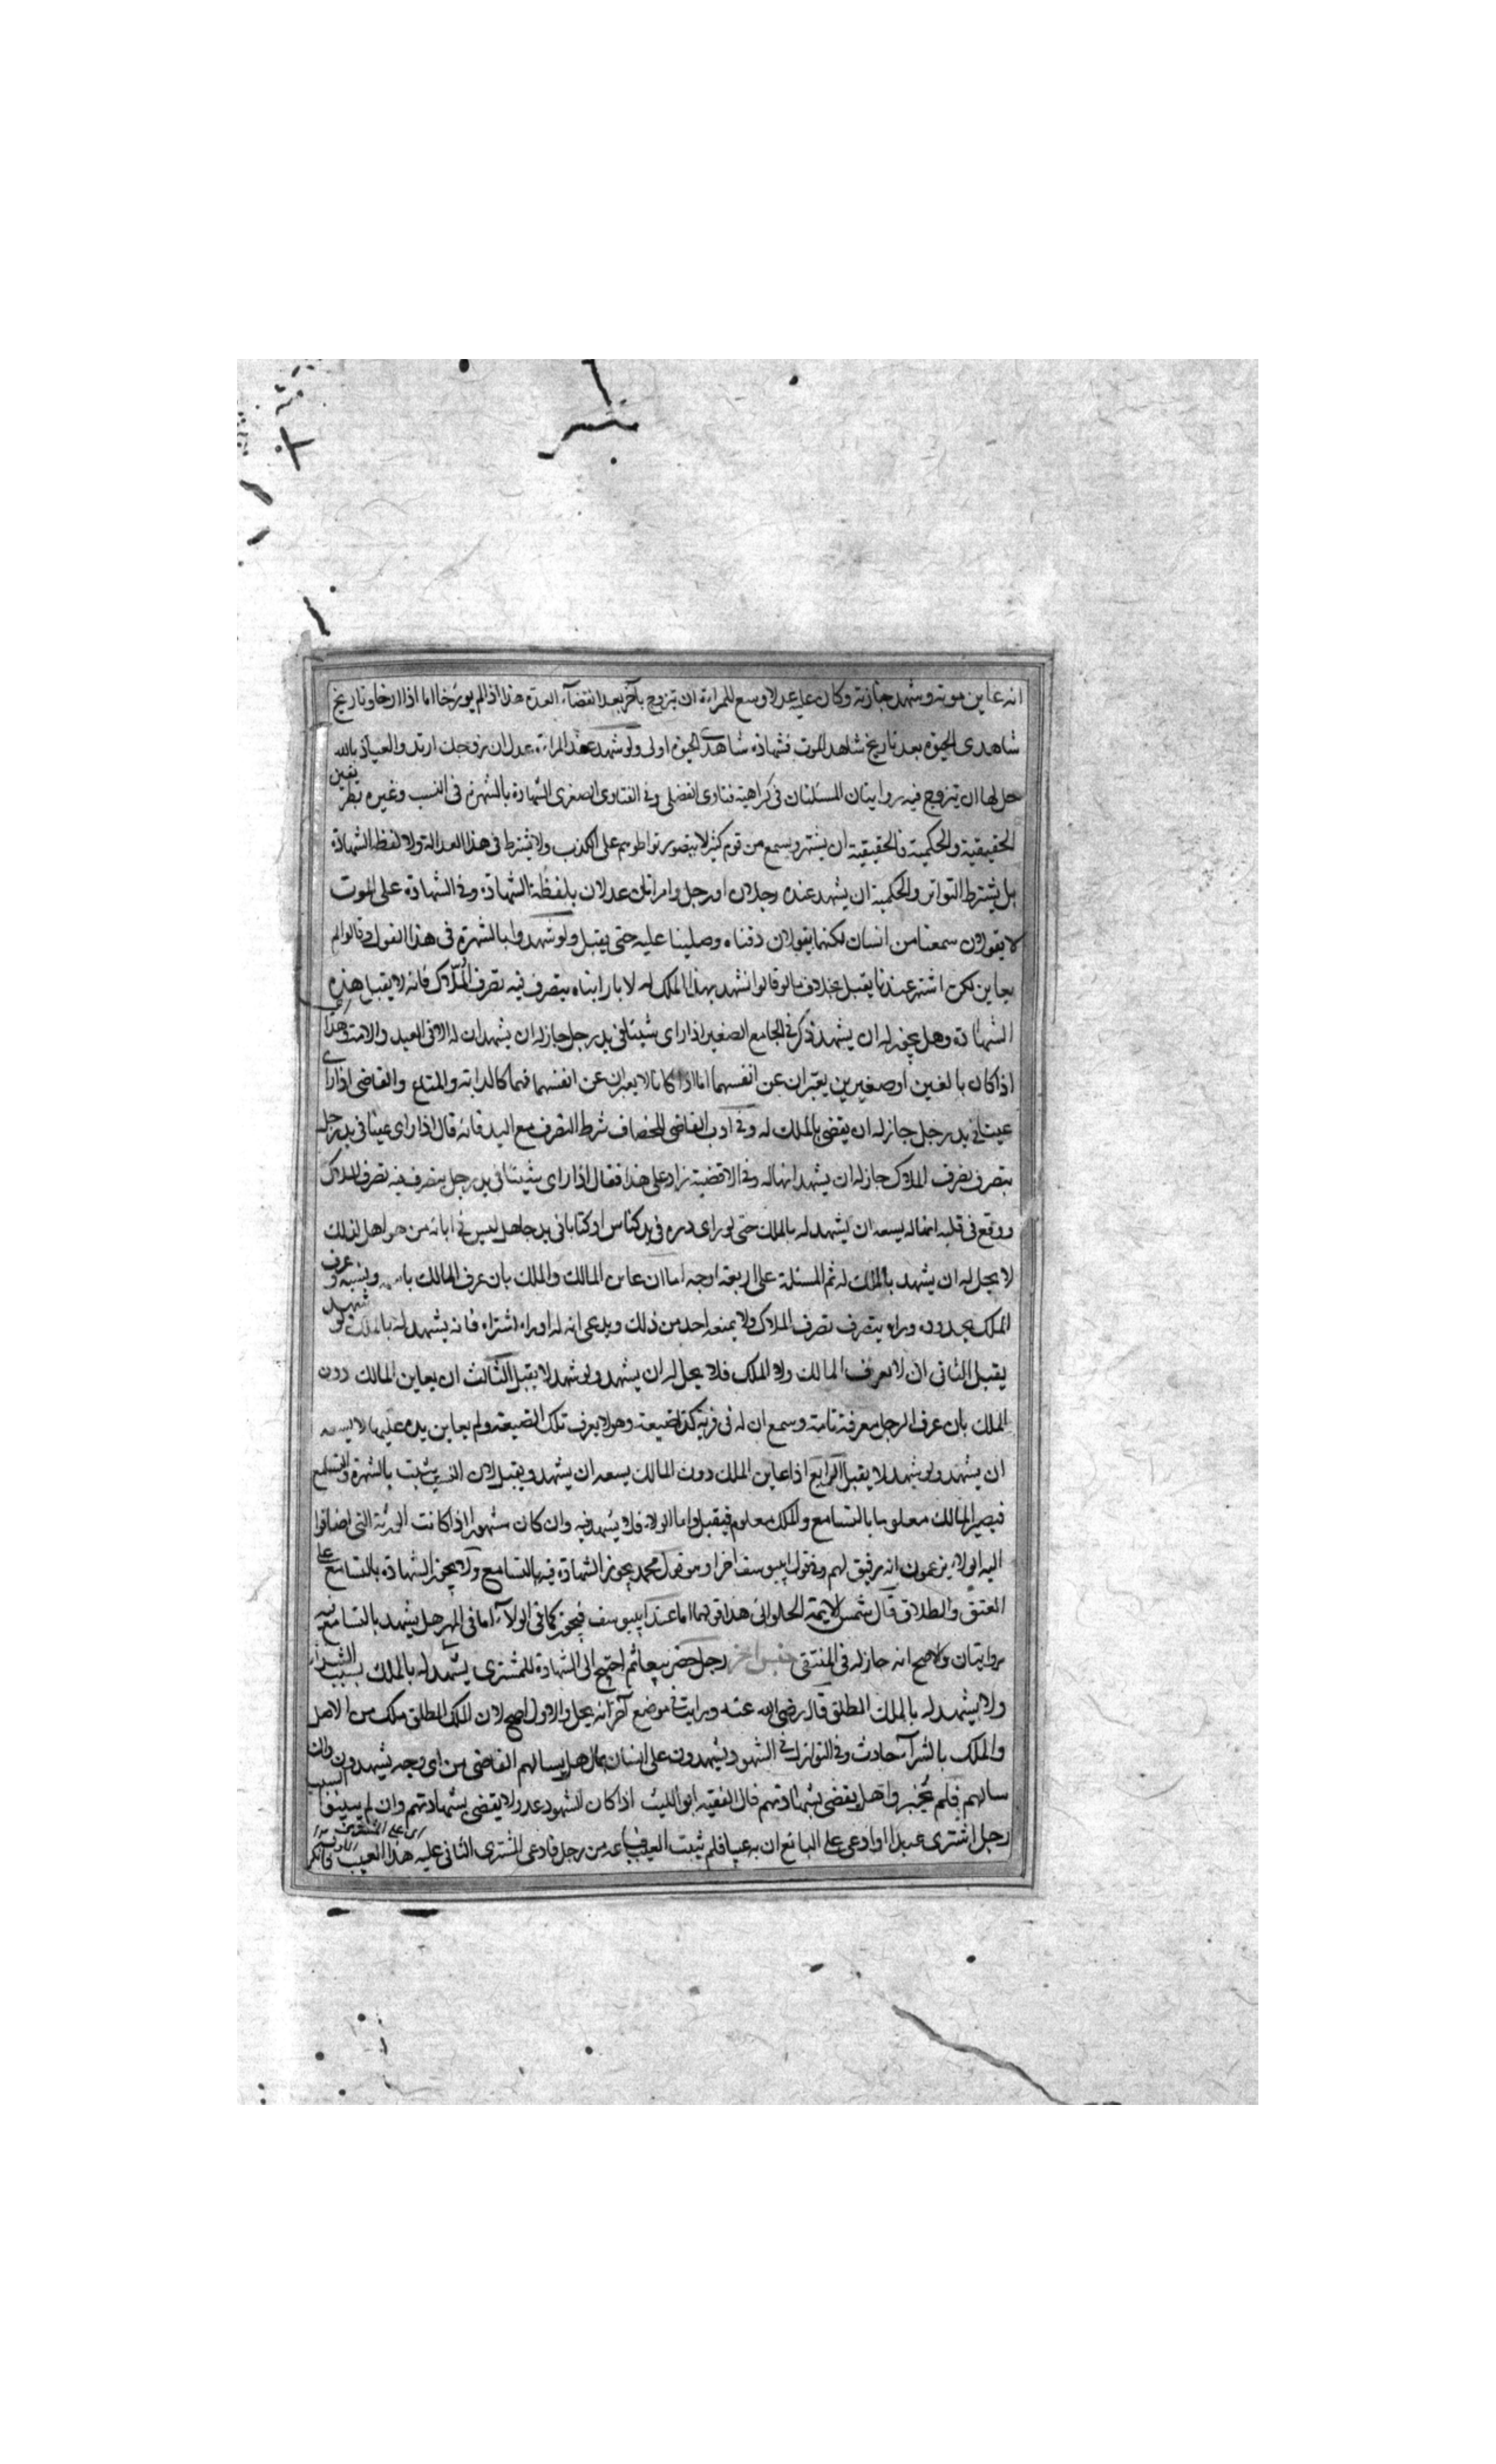 انه عاين موته وشهد جنازته وكان عليه عدلا وسع للمراءة ان تتزوج بآخر بعد انقضاء العدة هذا اذا لم يورخا اما اذا ارخا وتاريخ
شاهدى الحيوة بعد تاريخ شاهد الموت فشهادة شاهدى الحيوة اولى ولو شهد عند المراءة عدل ان زوجك ارتد والعياذ بالله
حل لها ان تتزوج فيه روايتان المسئلتان فى كراهية فتاوى الفضلى وفى الفتاوى الصغرى الشهادة بالشهرة فى النسب وغيره بطريقين
الحقيقية والحكمية فالحقيقية ان يشتهر ويسمع من قوم كثير لا يتصور تواطوهم على الكذب ولا يشترط فى هذا العدالة ولا لفظ الشهادة
بل يشترط التواتر والحكمية ان يشهد عنده رجلان او رجل وامراتان عدلان بلفظة الشهادة وفى الشهادة على الموت
لا يقولون سمعنا من انسان لكنهما يقولان دفناه وصلينا عليه حتى يقبل ولو شهدوا بالشهرة فى هذا القول وقالوا لم
يعاين لكن اشتهر عندنا يقبل بخلاف ما لو قالوا نشهد بهذا الملك له لانا رايناه يتصرف فيه تصرف الملاك فانه لا يقبل هذه
الشهادة وهل يجوز له ان يشهد ذكر فى الجامع الصغير اذا راى شيئا فى يد رجل جاز له ان يشهد ان له الا فى العبد والامة وهذا
اذا كان بالغين او صغيرين يعبران عن انفسهما اما اذا كانا لا يعبران عن انفسهما فهما كالدابة والمتاع والقاضى اذا راى
عينا فى يد رجل جاز له ان يقضى بالملك له وفى ادب القاضى للخصاف شرط التصرف مع اليد فانه قال اذا راى عينا فى يد رجل
يتصرف تصرف الملاك جاز له ان يشهد انها له وفى الاقضية زاد على هذا فقال اذا راى شيئا فى يد رجل يتصرف فيه تصرف الملاك
ووقع فى قلبه انها له يسعه ان يشهد له بالملك حتى لو راى درة فى يد كناس او كتابا فى يد جاهل ليس فى ابائه من هو اهل لذلك
لا يحل له ان يشهد بالملك له ثم المسئلة على اربعة اوجه اما ان عاين المالك والملك بان عرف المالك باسمه ونسبه وعرف
الملك بحدوده وراه يتصرف تصرف الملاك ولا يمنعه احد من ذلك ويدعى انه له اوراه اشتراه فانه يشهد له بالملك لو شهد
يقبل الثانى ان لا يعرف المالك ولا الملك فلا يحل له ان يشهد ولو شهد لا يقبل الثالث ان يعاين المالك دون
الملك بان عرف الرجل معرفة تامة وسمع ان له فى قرية كذا ضيعة وهو لا يعرف تلك الضيعة ولم يعاين يده عليها لا يسعه
ان يشهد ولو شهد لا يقبل الرابع اذا عاين الملك دون المالك يسعه ان يشهد ويقبل لان النسب يثبت بالشهرة والتسامع
فيصير المالك معلوما بالتسامع والملك معلوم فيقبل واما الولاء فلا يشهد فيه وان كان مشهورا اذا كانت الورثة التى اضافوا
اليه الولاء يزعمون انه رقيق لهم وفى قول ابى يوسف اخرا وهو قول محمد يجوز الشهادة فيه بالتسامع ولا يجوز الشهادة بالتسامع على
العتق والطلاق قال شمس الايمة الحلوانى هذا قولهما اما عند ابى يوسف فيجوز كما فى الولاء اما فى المهر هل يشهد بالتسامع فيه
روايتان والاصح انه جاز له فى المنتقى جنس اخر رجل حضر بيعا ثم احتيج الى الشهادة للمشترى يشهد له بالملك بسبب الشراء
ولا يشهد له بالملك المطلق قال رضى الله عنه ورايت فى موضع آخر انه يحل والاول اصح لان الملك المطلق ملك من الاصل
والملك بالشراء حادث وفى النوازل فى الشهود يشهدون على انسان بمال هل يسالهم القاضى من اى وجه يشهدون وان
سالهم فلم يخبروا هل يقضى بشهادتهم قال الفقيه ابو الليث اذا كان الشهود عدولا يقضى بشهادتهم وان لم يبينوا السبب
رجل اشترى عبدا وادعى على البائع ان به عيبا فلم يثبت العيب فباعه من رجل فادعى المشترى الثانى عليه هذا العيب فانكر